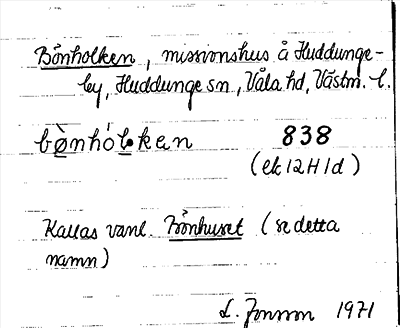 Bönholken, missionshus å Huddunge-
by, Huddunge sn, Våla hd, Västm. l.
bö̀nhó̀l•ken 838
(ek 12H1d)
Kallas vanl. Bönhuset (se detta
namn)
L. Jonsson 1971